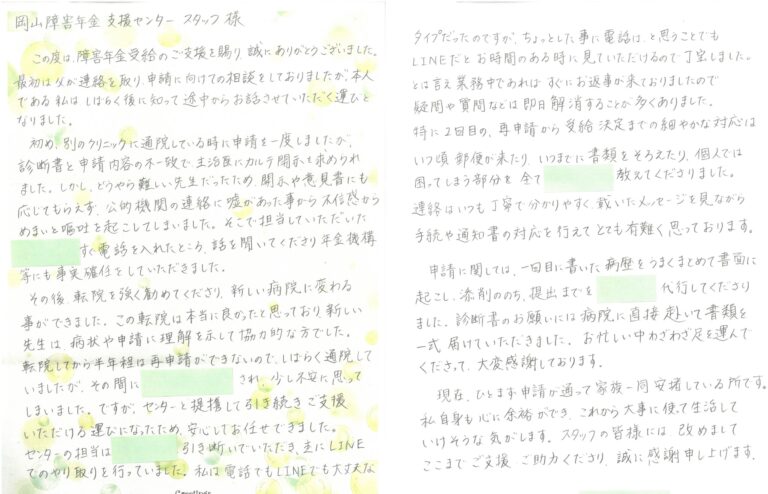 岡山障害年金支援センター スタッフ様
この度は、障害年金受給のご支援を賜り、誠にありがとうございました。
最初は父が連絡を取り、申請に向けての相談をしておりましたが、本人
である私は しばらく後に知って 途中からお話させていただく運びと
なりました。
初め、別のクリニックに通院している時に申請を一度しましたが、
診断書と申請内容の不一致で、主治医にカルテ開示を求められ
ました。しかし、どうやら難しい先生だったため、開示や意見書にも
応じてもらえず、公的機関の連絡に嘘があった事から不信感から
めまいと嘔吐を起こしてしまいました。そこで担当していただいた
すぐ電話を入れたところ、話を聞いてくださり年金機構
等にも事実確任をしていただきました。
その後、転院を強く勧めてくださり、新しい病院に変わる
事ができました。この転院は本当に良かったと思っており、新しい
先生は、病状や申請に理解を示して協力的な方でした。
転院してから半年程は再申請ができないので、しばらく通院して
いましたが、その間に され、少し不安に思って
しまいました。ですが、センターと提携して引き続きご支援
いただける運びになったため、安心してお任せできました。
センターの担当は 引き断いでいただき、主にLINE
でのやり取りを行っていました。私は電話でもLINEでも大丈夫な
タイプだったのですが、ちょっとした事に電話は、と思うことでも
LINEだと お時間のある時に見ていただけるので丁宝しました。
とは言え業務中であれば すぐにお返事が来ておりましたので
疑問や質問などは即日解消することが多くありました。
特に2回目の、再申請から受給決定までの細やかな対応は
いつ頃郵便が来たり、いつまでに書類をそろえたり、個人では
困ってしまう部分を全て 教えてくださりました。
連絡はいつも丁寧で分かりやすく、戴いたメッセージを見ながら
手続や通知書の対応を行えて とても有難く思っております。
申請に関しては、一回目に書いた病歴をうまくまとめて書面に
起こし、添削ののち、提出までを 代行してくださり
ました。診断書のお願いには病院に直接赴いて書類を
一式届けていただきました。お忙しい中わざわざ足を運んで
くださって、大変感謝しております。
現在、ひとまず申請が通って家族一同安堵している所です。
私自身も心に余裕ができ、これから大事に使って生活して
いけそうな気がします。スタッフの皆様には、改めまして
ここまでご支援 ご助力くださり、誠に感謝申し上げます。